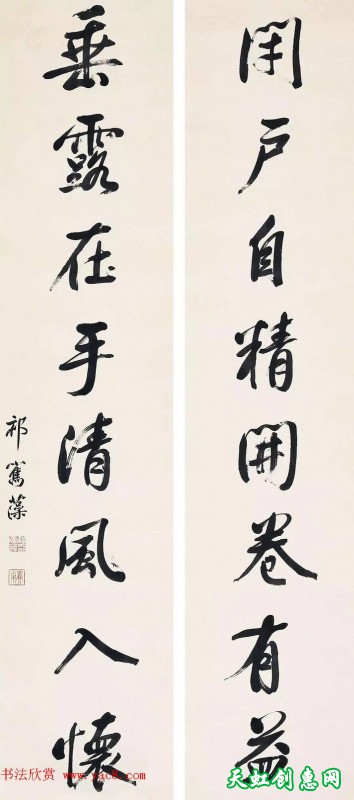 閉户自精開卷有益
垂露在手清風入懷
祁寯藻
书法欣赏 www.yac8.com
天虹创惠网